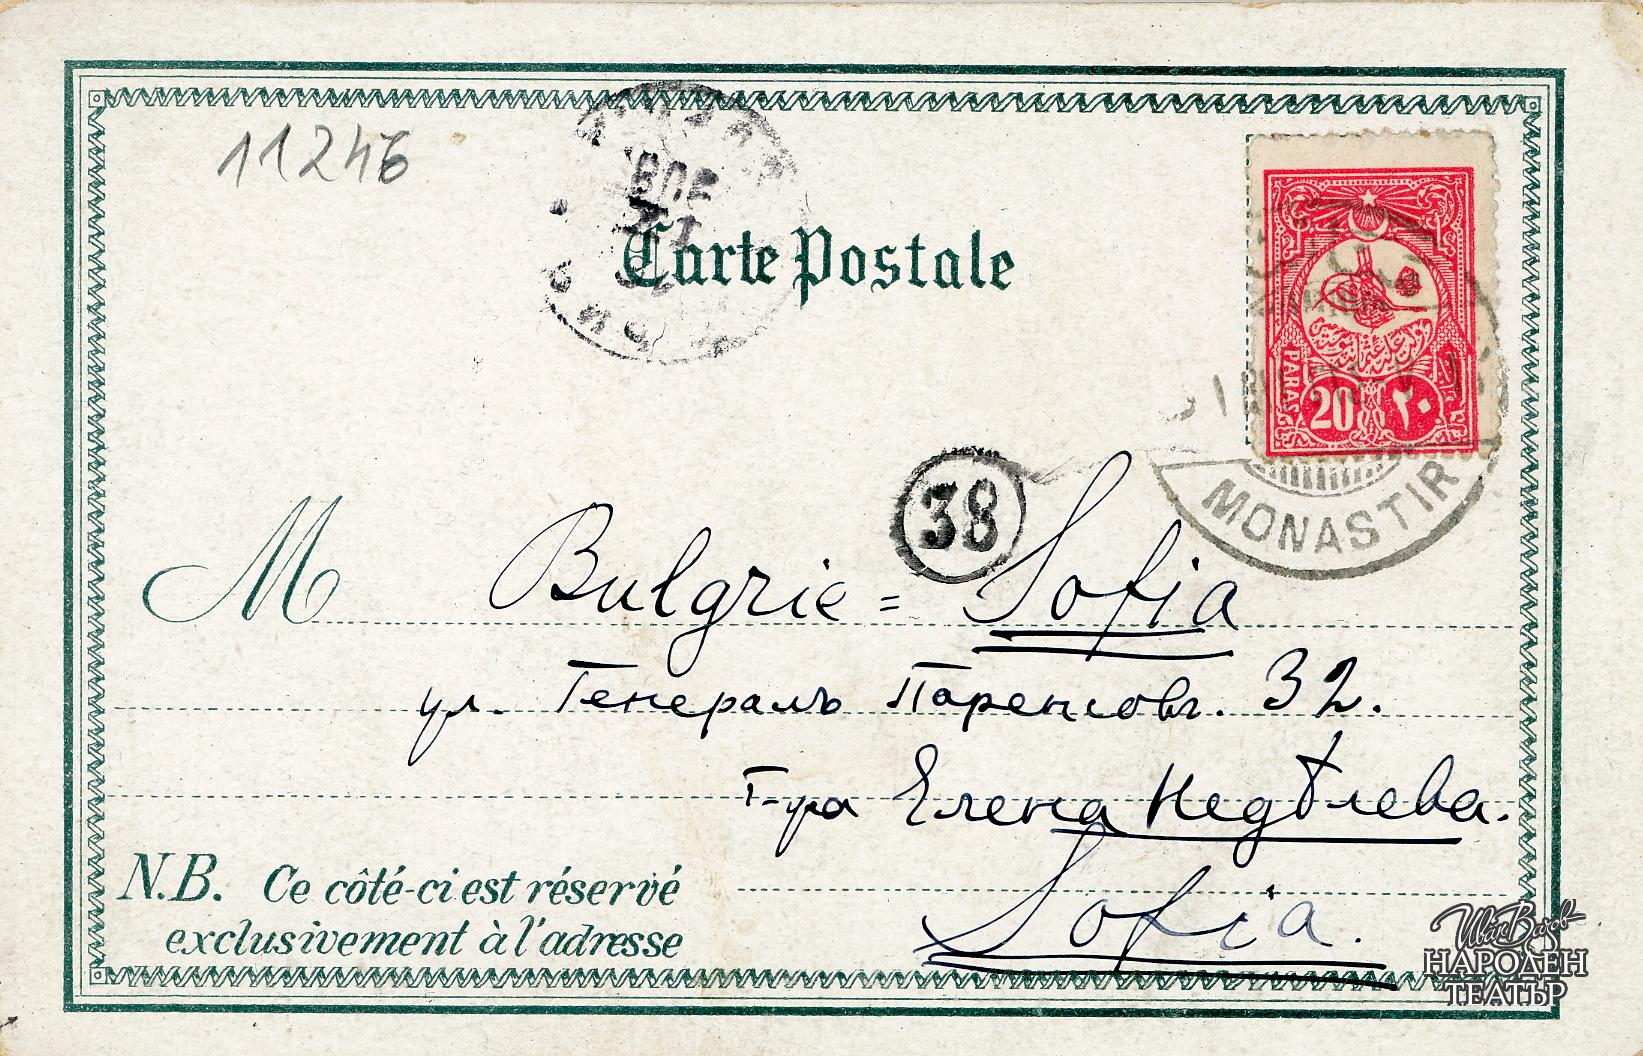 11246
Carte Postale
PARAS
20 ٢٠
MONASTIR
38
M Bulgrie = Sofia
ул. Генералъ Паренсовъ. 32.
Г-ца Елена Недѣлева.
Sofia.
N.B. Ce côté-ci est réservé
exclusivement à l'adresse
Иван Вазов
НАРОДЕН
ТЕАТЪР